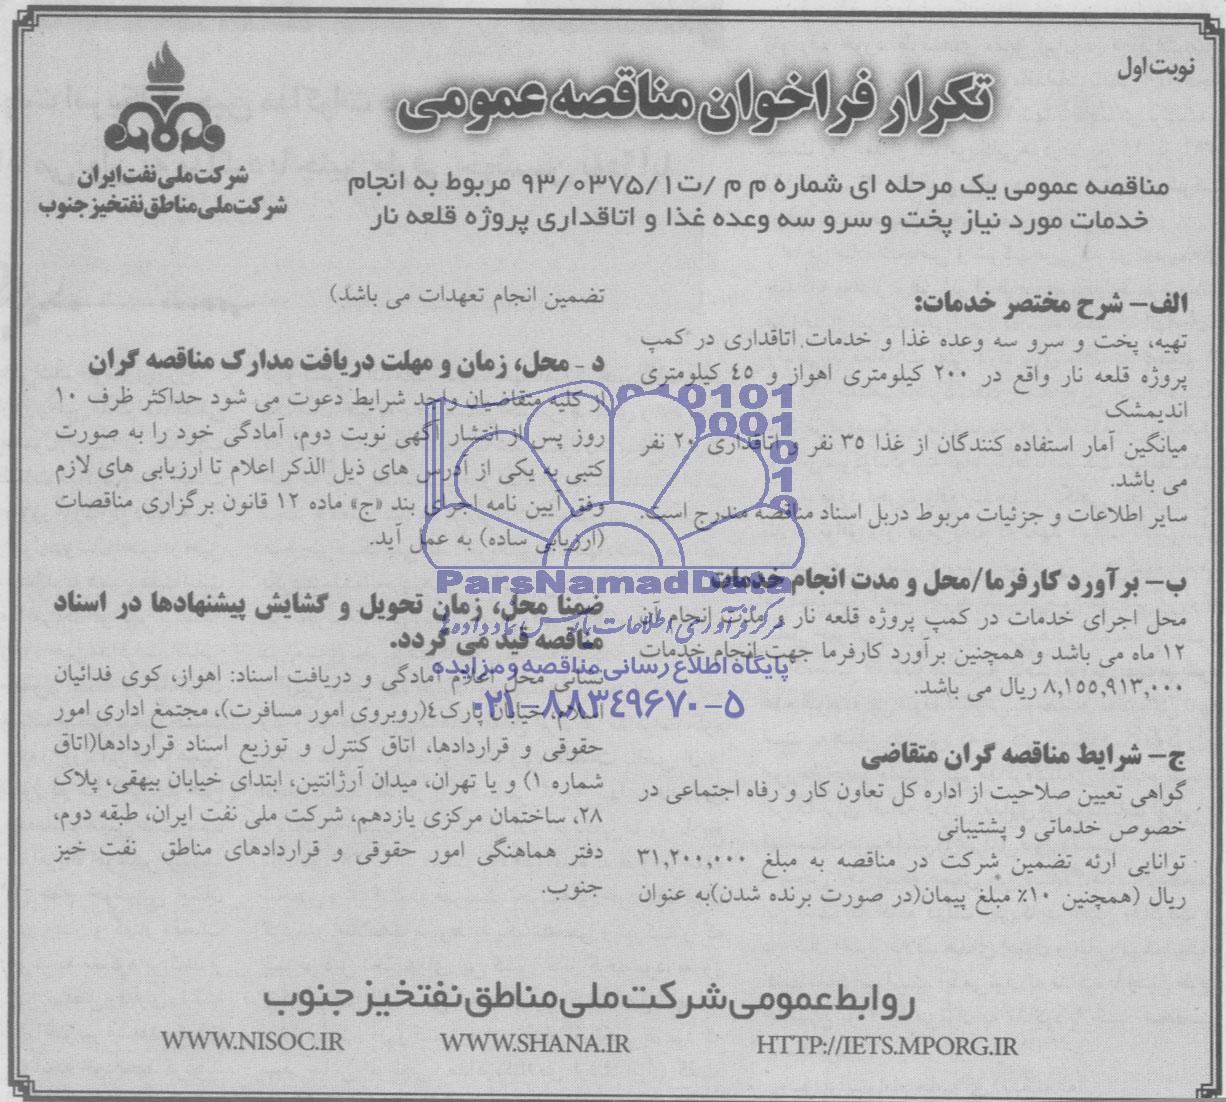 نوبت اول
تکرار فراخوان مناقصه عمومی
شرکت ملی نفت ایران
شرکت ملی مناطق نفتخیز جنوب
مناقصه عمومی یک مرحله ای شماره م م /ت۹۳/۰۳۷۵/۱ مربوط به انجام
خدمات مورد نیاز پخت و سرو سه وعده غذا و اتاقداری پروژه قلعه نار
الف– شرح مختصر خدمات:
تهیه، پخت و سرو سه وعده غذا و خدمات اتاقداری در کمپ
پروژه قلعه نار واقع در ۲۰۰ کیلومتری اهواز و ٤٥ کیلومتری
اندیمشک
میانگین آمار استفاده کنندگان از غذا ۳۵ نفر و اتاقداری ۲۰ نفر
می باشد.
سایر اطلاعات و جزئیات مربوط دربل اسناد مناقصه مندرج است.
ب– برآورد کارفرما/محل و مدت انجام خدمات
محل اجرای خدمات در کمپ پروژه قلعه نار و مدت انجام آن
۱۲ ماه می باشد و همچنین برآورد کارفرما جهت انجام خدمات
۸,۱۵۵,۹۱۳,۰۰۰ ریال می باشد.
ج– شرایط مناقصه گران متقاضی
گواهی تعیین صلاحیت از اداره کل تعاون کار و رفاه اجتماعی در
خصوص خدماتی و پشتیبانی
توانایی ارئه تضمین شرکت در مناقصه به مبلغ ۳۱,۲۰۰,۰۰۰
ریال (همچنین ۱۰٪ مبلغ پیمان(در صورت برنده شدن)به عنوان
تضمین انجام تعهدات می باشد)
د - محل، زمان و مهلت دریافت مدارک مناقصه گران
از کلیه متقاضیان واجد شرایط دعوت می شود حداکثر ظرف ۱۰
روز پس از انتشار آگهی نوبت دوم، آمادگی خود را به صورت
کتبی به یکی از آدرس های ذیل الذکر اعلام تا ارزیابی های لازم
وفق آیین نامه اجرای بند «ج» ماده ۱۲ قانون برگزاری مناقصات
(ارزیابی ساده) به عمل آید.
ضمنا محل، زمان تحویل و گشایش پیشنهادها در اسناد
مناقصه قید می گردد.
نشانی محل اعلام آمادگی و دریافت اسناد: اهواز، کوی فدائیان
اسلام، خیابان پارک٤(روبروی امور مسافرت)، مجتمغ اداری امور
حقوقی و قراردادها، اتاق کنترل و توزیع اسناد قراردادها(اتاق
شماره ۱) و یا تهران، میدان آرژانتین، ابتدای خیابان بیهقی، پلاک
۲۸، ساختمان مرکزی یازدهم، شرکت ملی نفت ایران، طبقه دوم،
دفتر هماهنگی امور حقوقی و قراردادهای مناطق نفت خیز
جنوب.
ParsNamadData
مرکز فرآوری اطلاعات پارس نماد داده ها
پایگاه اطلاع رسانی مناقصه و مزایده
۰۲۱–۸۸۳٤۹٦۷۰–۵
روابط عمومی شرکت ملی مناطق نفتخیز جنوب
WWW.NISOC.IR WWW.SHANA.IR HTTP://IETS.MPORG.IR